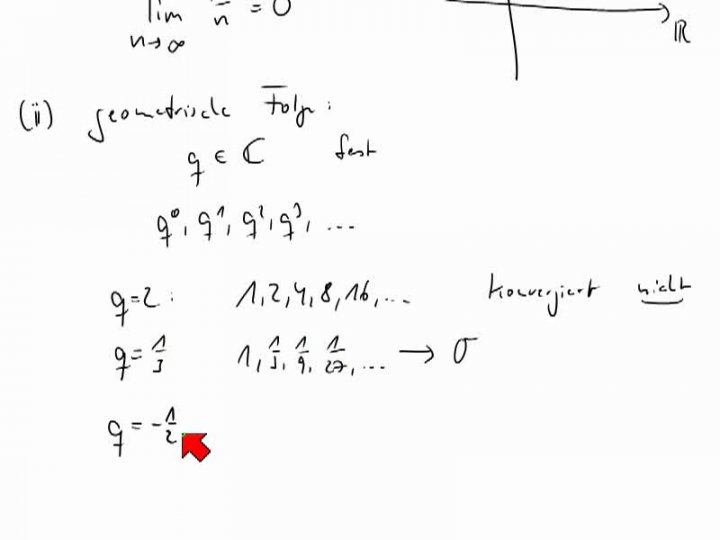 lim 1/n = 0
n→∞
ℝ
(ii) geometrische Folge:
q ∈ ℂ fest
q⁰, q¹, q², q³, ...
q=2: 1, 2, 4, 8, 16, ... konvergiert nicht
q = 1/3 1, 1/3, 1/9, 1/27, ... → 0
q = -1/2